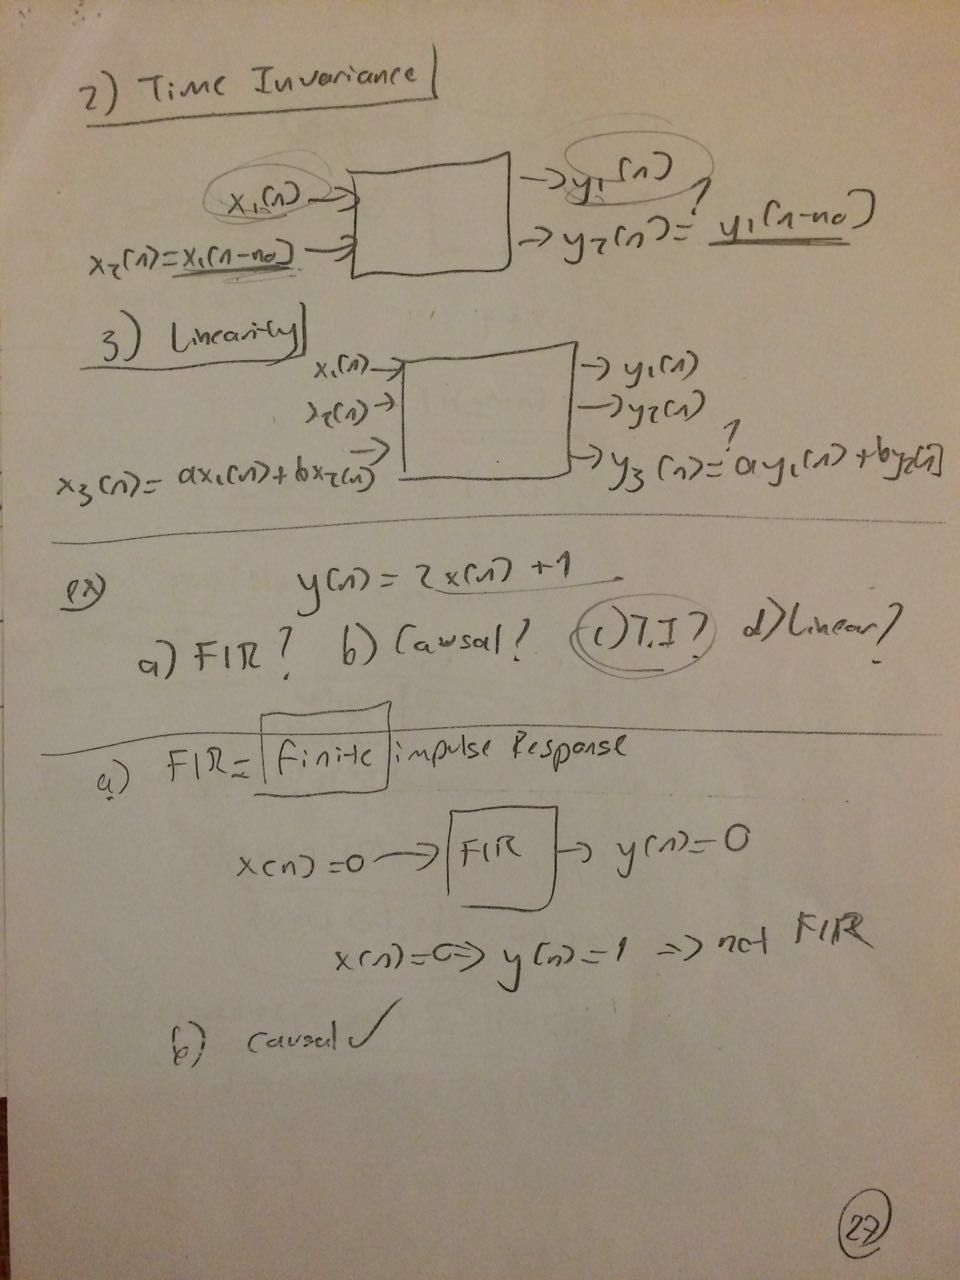 2) Time Invariance
x₁[n] → → y₁[n]
x₂[n] = x₁[n-n₀] → → y₂[n] =? y₁[n-n₀]
3) Linearity
x₁[n] → → y₁[n]
x₂[n] → → y₂[n]
x₃[n] = ax₁[n] + bx₂[n] → → y₃[n] =? ay₁[n] + by₂[n]
ex) y[n] = 2x[n] + 1
a) FIR? b) Causal? c) T.I? d) Linear?
a) FIR = Finite impulse Response
x[n] = 0 → FIR → y[n] = 0
x[n] = 0 => y[n] = 1 => not FIR
b) causal ✓
27